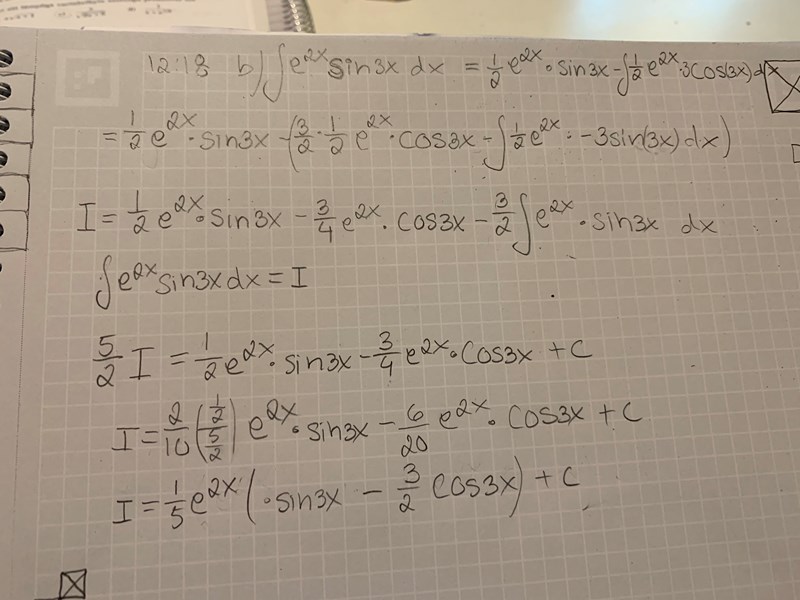 12:18 b) ∫e^2x sin3x dx = 1/2 e^2x · sin3x - ∫1/2 e^2x · 3cos(3x) dx
= 1/2 e^2x · sin3x - (3/2 · 1/2 e^2x · cos3x - ∫1/2 e^2x · -3sin(3x) dx)
I = 1/2 e^2x · sin3x - 3/4 e^2x · cos3x - 3/2 ∫e^2x · sin3x dx
∫e^2x sin3x dx = I
5/2 I = 1/2 e^2x · sin3x - 3/4 e^2x · cos3x + C
I = 2/10 ((1/2)/(5/2)) e^2x · sin3x - 6/20 e^2x · cos3x + C
I = 1/5 e^2x (· sin3x - 3/2 cos3x) + C